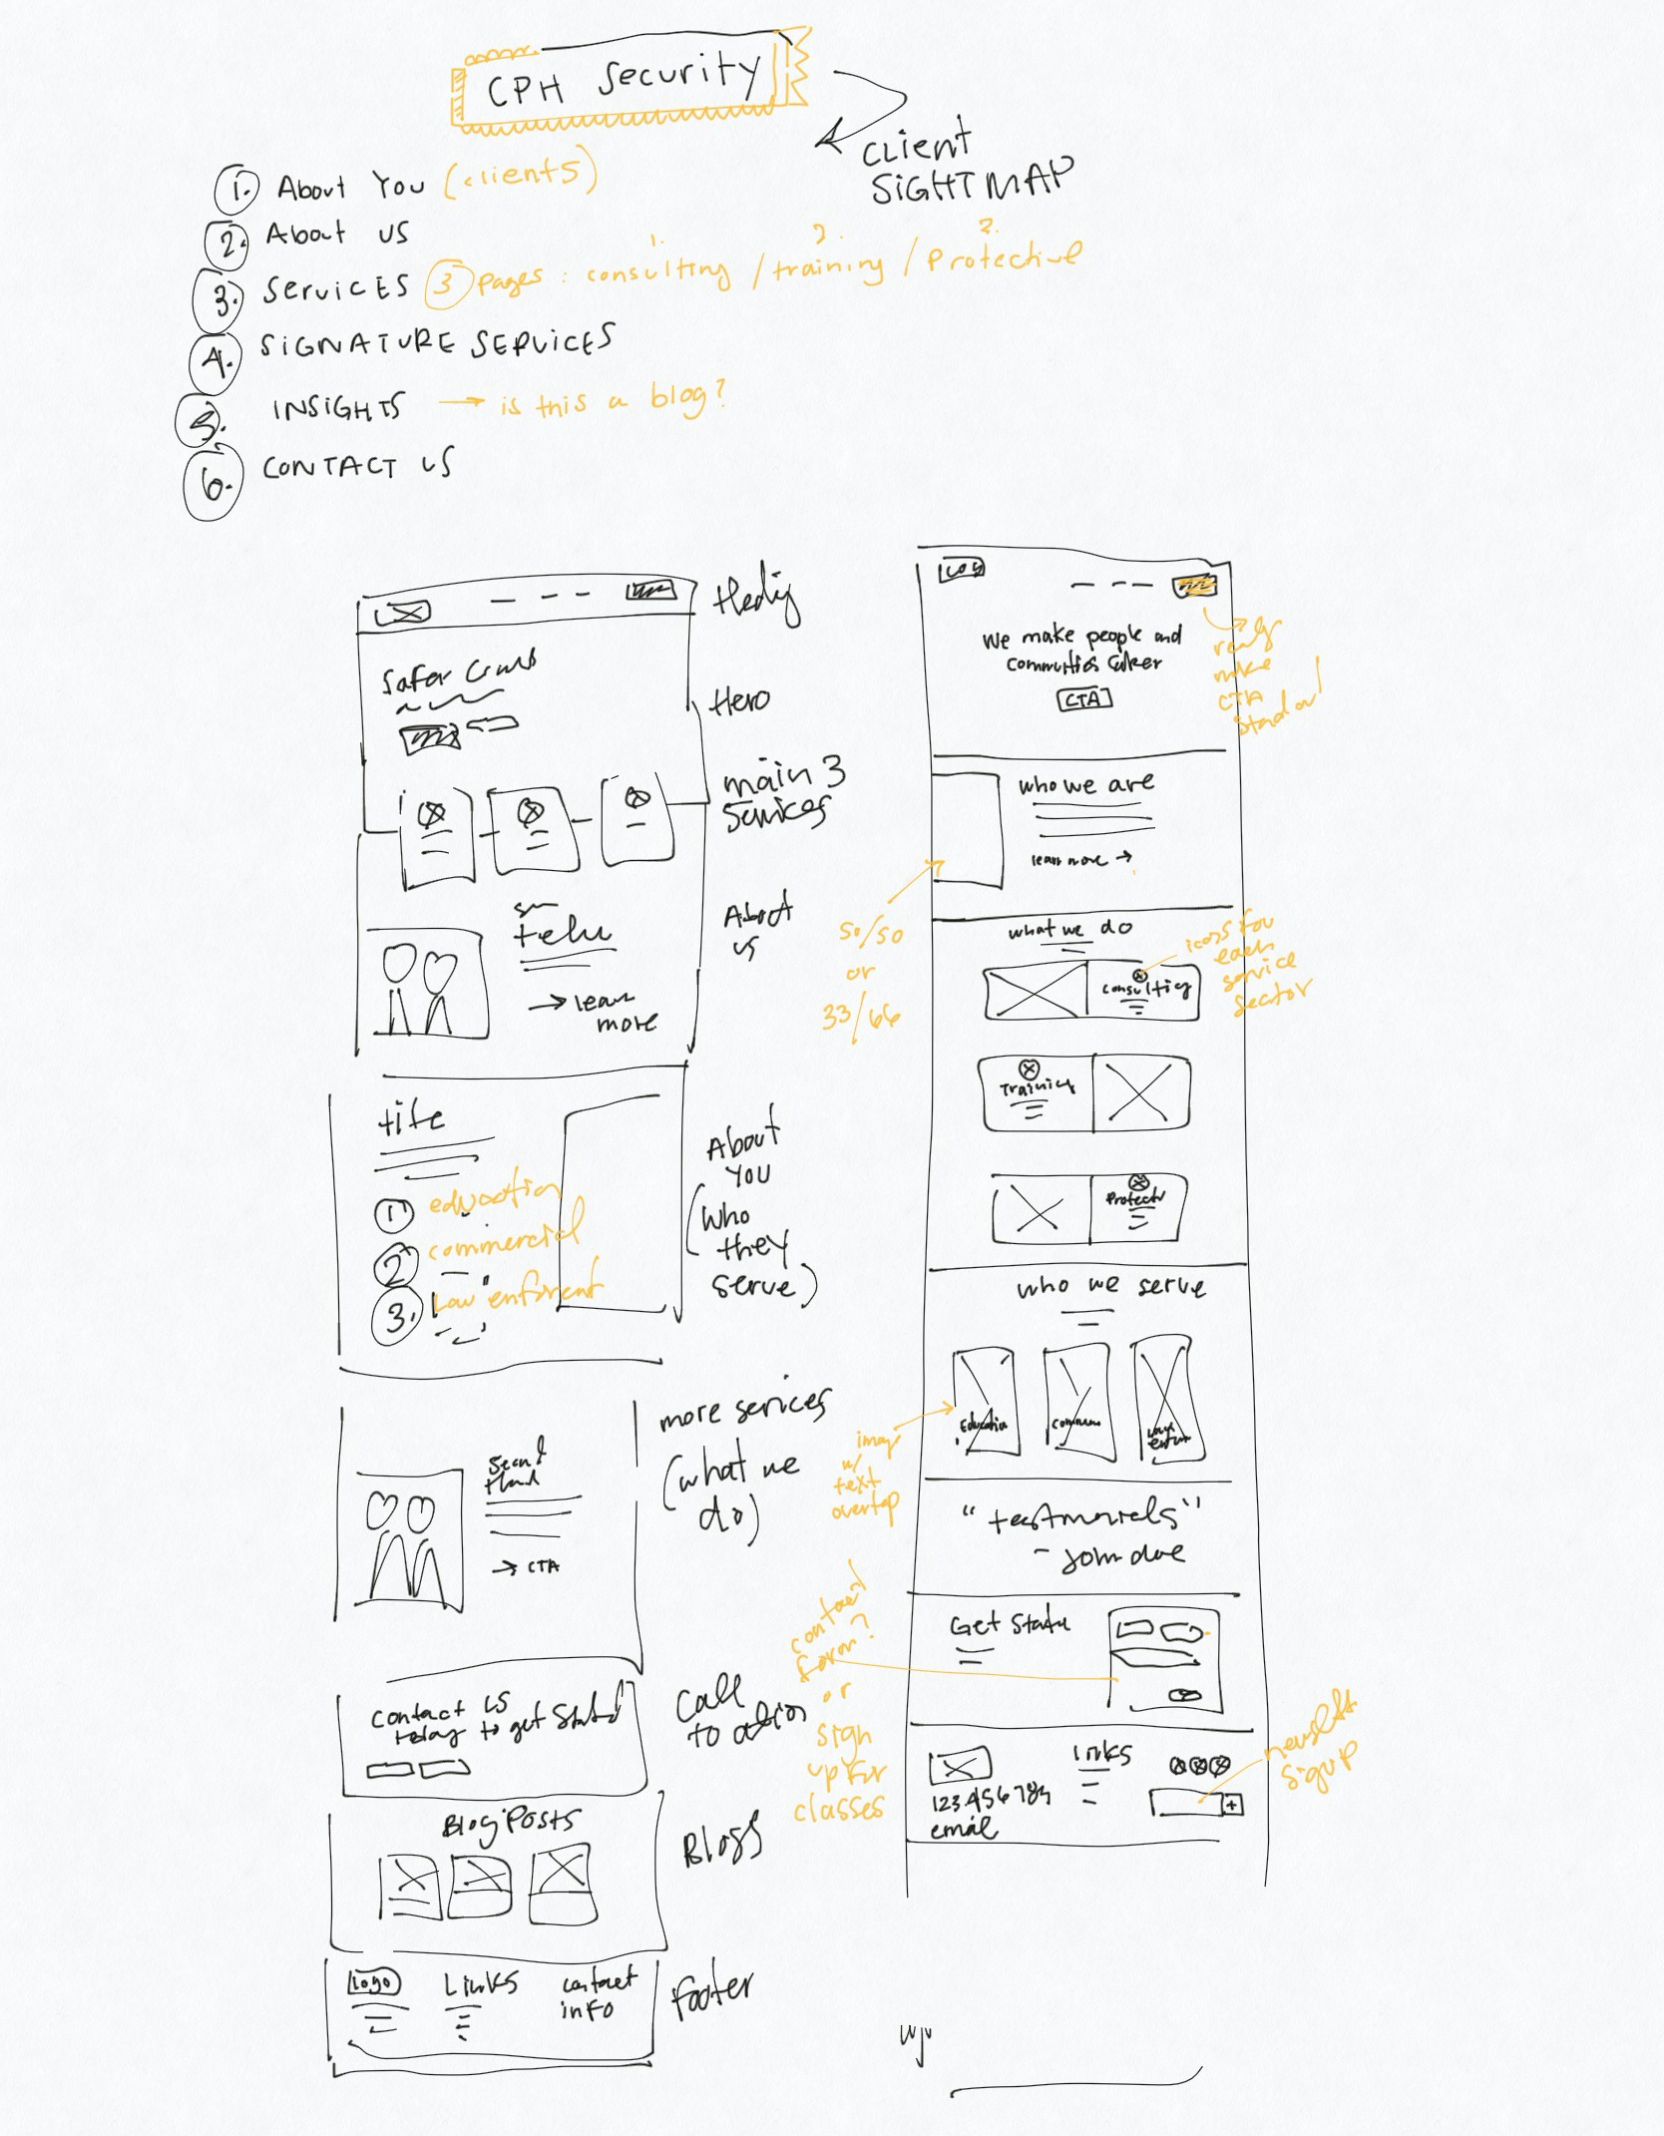 CPH Security
CLIENT
SIGHTMAP
1. About You (clients)
2. About us
1. 2. 2.
3. Services ③ pages: consulting / training / Protective
4. SIGNATURE SERVICES
5. INSIGHTS → is this a blog?
6. CONTACT US
Hero
main 3
Services
→ learn
more
About
us
title
1 education
2 commercial
3. Law
About
You
(Who
they
serve)
more services
(what we
do)
→ CTA
contact us
today to get
Call
to
Blog Posts
Blogs
logo
Links
contact
info
footer
We make people and
CTA
make
CTA
who we are
learn more →
50/50
or
33/66
what we do
consulting
icons for
each
service
sector
Training
who we serve
Education
image
w/
text
overlap
"testmonials"
- John doe
Get
contact
form?
or
sign
up for
classes
links
email
+